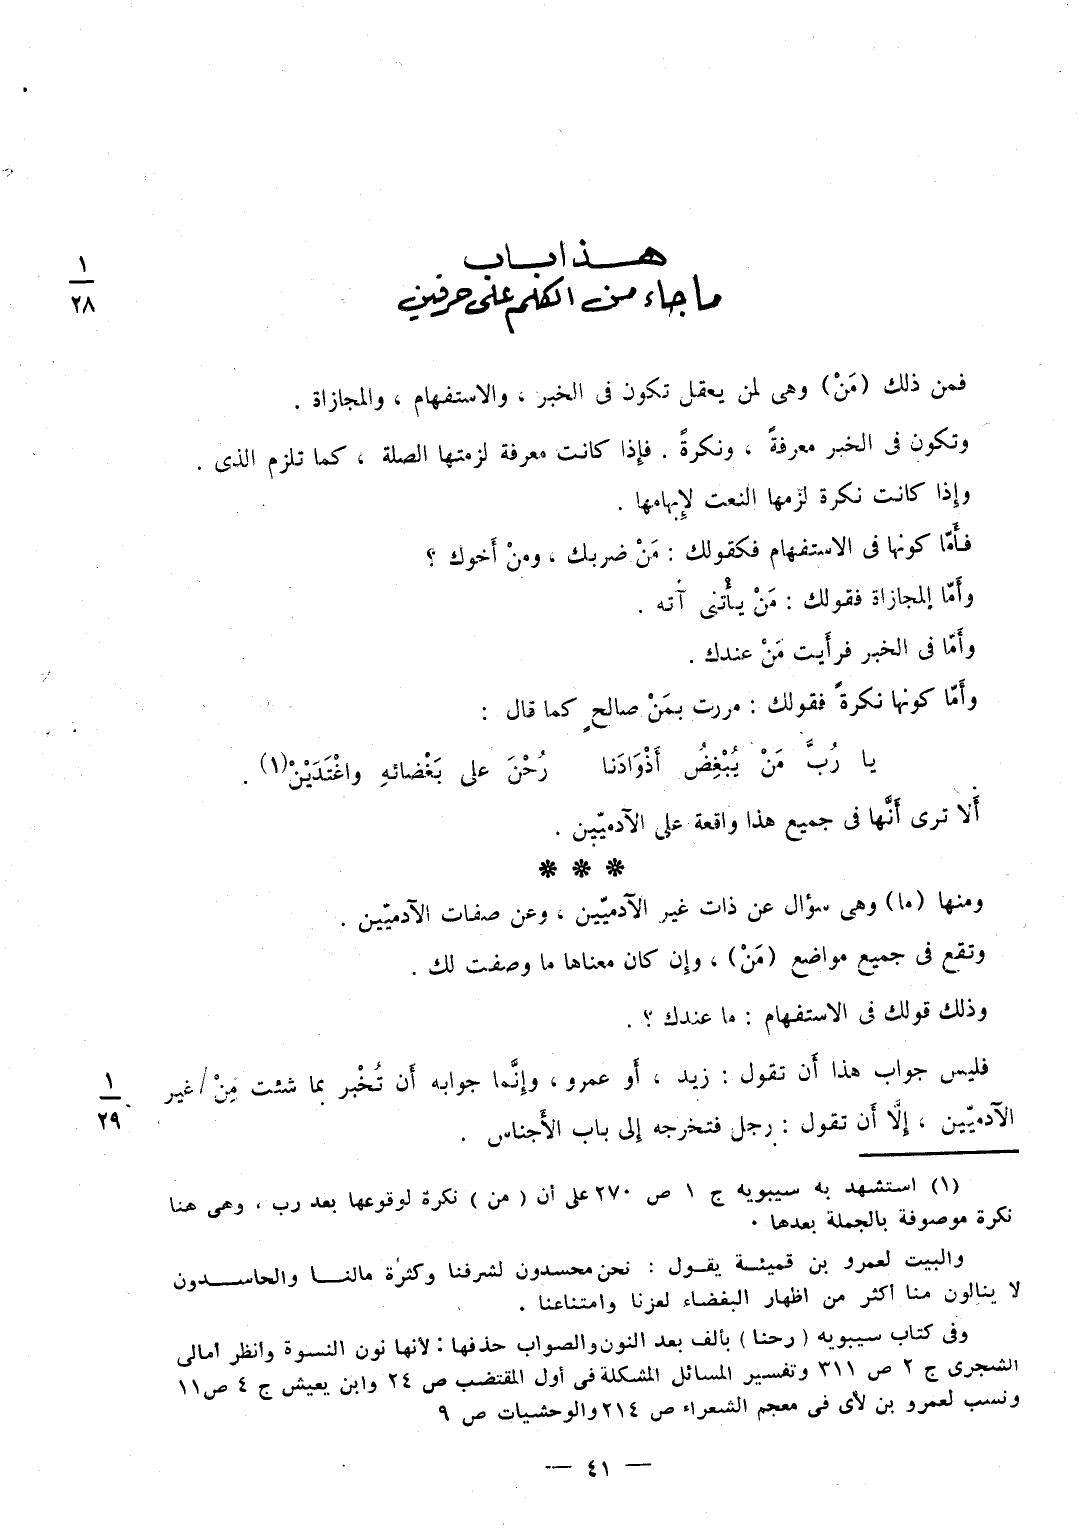 هذا باب
ما جاء من الكلم على حرفين
١
٢٨
فمن ذلك (مَنْ) وهى لمن يعقل تكون فى الخبر ، والاستفهام ، والمجازاة .
وتكون فى الخبر معرفةً ، ونكرةً . فإذا كانت معرفة لزمتها الصلة ، كما تلزم الذى .
وإذا كانت نكرة لزمها النعت لإِبهامها .
فأَمّا كونها فى الاستفهام فكقولك : مَنْ ضربك ، ومنْ أَخوك ؟
وأَمّا المجازاة فقولك : مَنْ يأْتنى آته .
وأَمّا فى الخبر فرأَيت مَنْ عندك .
وأَمّا كونها نكرةً فقولك : مررت بمَنْ صالحٍ كما قال :
يا رُبَّ مَنْ يُبْغِضُ أَذْوَادَنا رُحْنَ على بَغْضائهِ واغْتَدَيْنْ(١) .
أَلا ترى أَنَّها فى جميع هذا واقعة على الآدميّين .
* * *
ومنها (ما) وهى سؤال عن ذات غير الآدميّين ، وعن صفات الآدميّين .
وتقع فى جميع مواضع (مَنْ) ، وإن كان معناها ما وصفت لك .
وذلك قولك فى الاستفهام : ما عندك ؟ .
فليس جواب هذا أَن تقول : زيد ، أَو عمرو ، وإنَّما جوابه أَن تُخْبر بما شئت مِنْ / غير
١
٢٩
الآدميّين ، إلَّا أَن تقول : رجل فتخرجه إلى باب الأَجناس .
(١) استشهد به سيبويه ج ١ ص ٢٧٠ على أن ( من ) نكرة لوقوعها بعد رب ، وهى هنا
نكرة موصوفة بالجملة بعدها ٠
والبيت لعمرو بن قميئة يقول : نحن محسدون لشرفنا وكثرة مالنا والحاسدون
لا ينالون منا أكثر من اظهار البغضاء لعزنا وامتناعنا .
وفى كتاب سيبويه ( رحنا ) بألف بعد النون والصواب حذفها : لأنها نون النسوة وأنظر أمالى
الشجرى ج ٢ ص ٣١١ وتفسير المسائل المشكلة فى أول المقتضب ص ٢٤ وابن يعيش ج ٤ ص ١١
ونسب لعمرو بن لأى فى معجم الشعراء ص ٢١٤ والوحشيات ص ٩
— ٤١ —